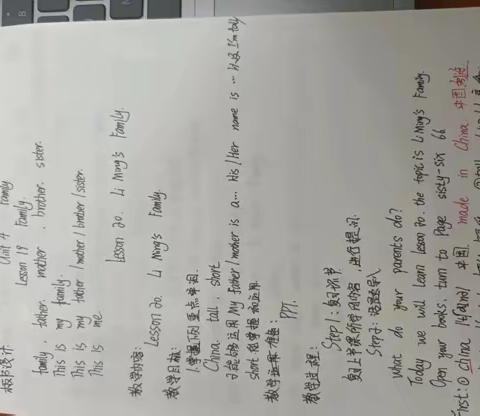 板书设计
Unit 4 Family
Lesson 19 Family.
family. father. mother. brother. sister.
This is my family.
This is my father / mother / brother / sister.
This is me
Lesson 20. Li Ming's Family.
教学内容: Lesson 20. Li Ming's Family.
教学目标:
China. tall. short
My father / mother is a... His / Her name is ...
short.
PPT.
教学过程:
Step1: 复习环节
复习上节课所学的内容,进行提问.
Step2: 话题导入
What do your parents do?
Today we will learn lesson 20. the topic is Li Ming's Family.
Open your books, turn to Page sisty-six 66
First: ① china 中国. made in China 中国制造